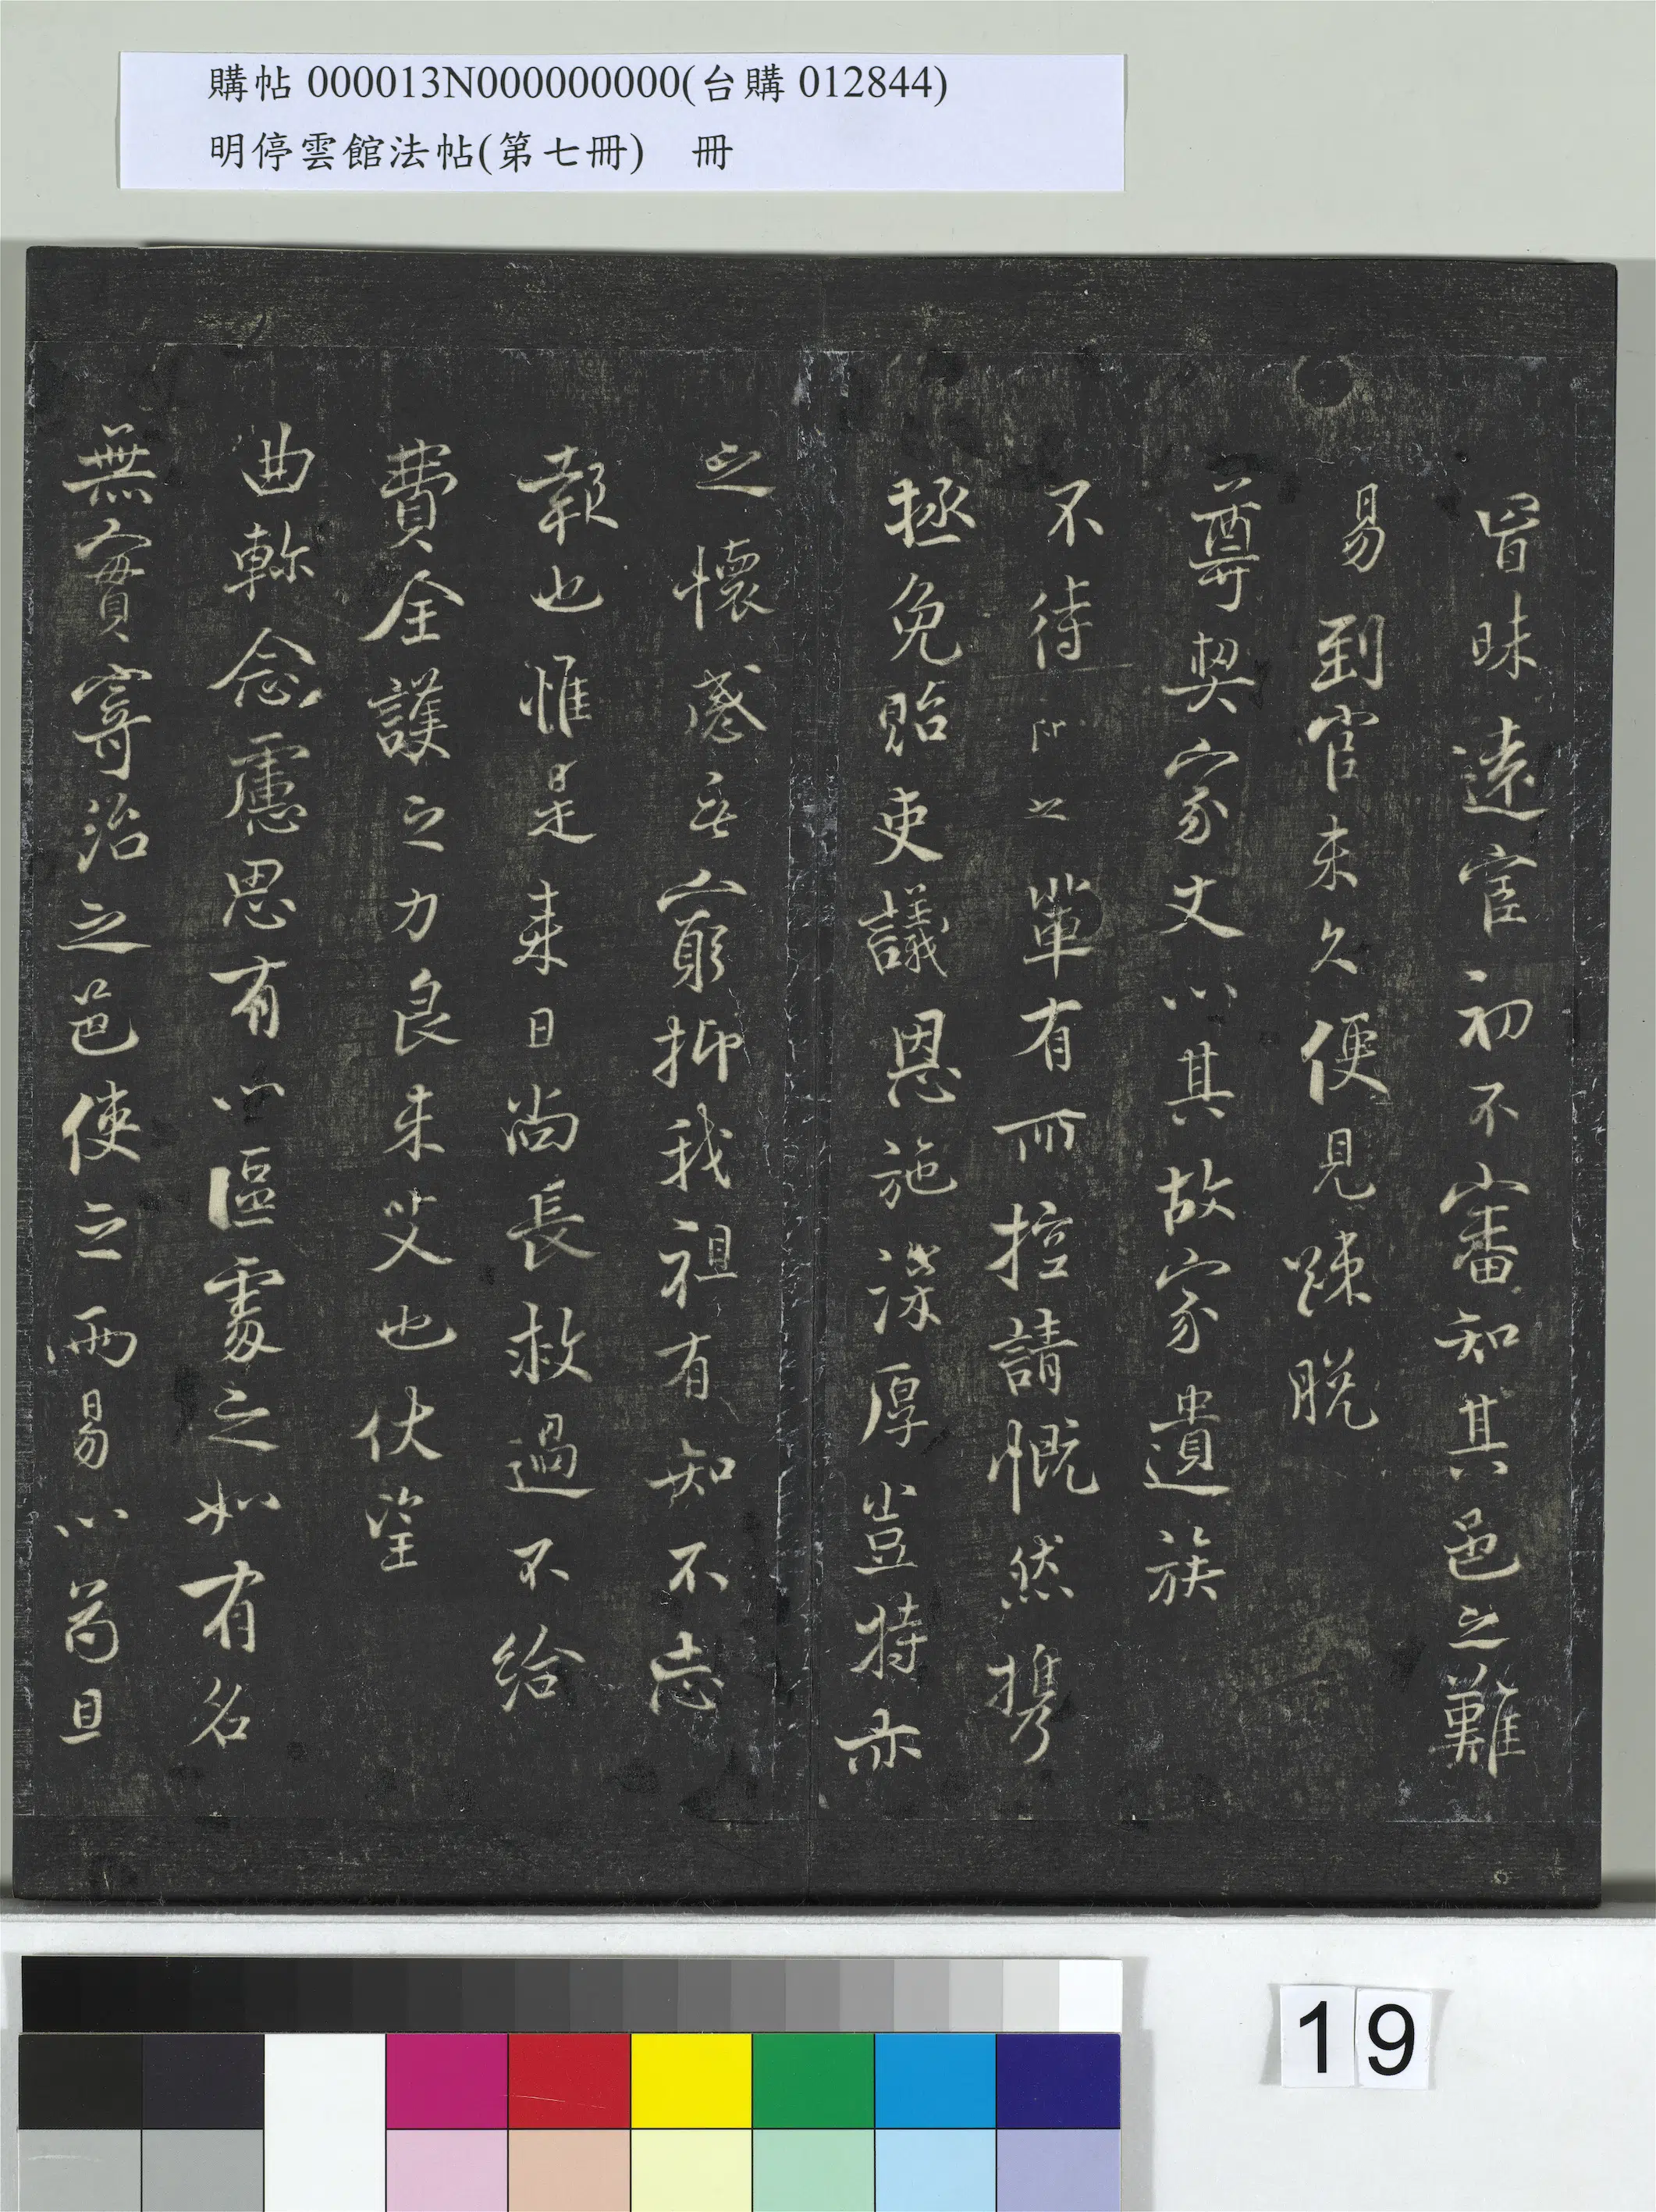 購帖 000013N000000000(台購 012844)
明停雲館法帖(第七冊)　冊
冒昧遠宦初不審知其邑之難
易到官未久便見踈脫
尊契家丈以其故家遺族
不待 之 單有所控請慨然携
拯免貽吏議恩施深厚豈特亦
之懷感無窮抑我祖有知不忘
報也惟是來日尚長救過不給
費全護之力良未艾也伏望
曲軫念慮思有以區處之如有名
無實寄治之邑使之兩易以苟且
19